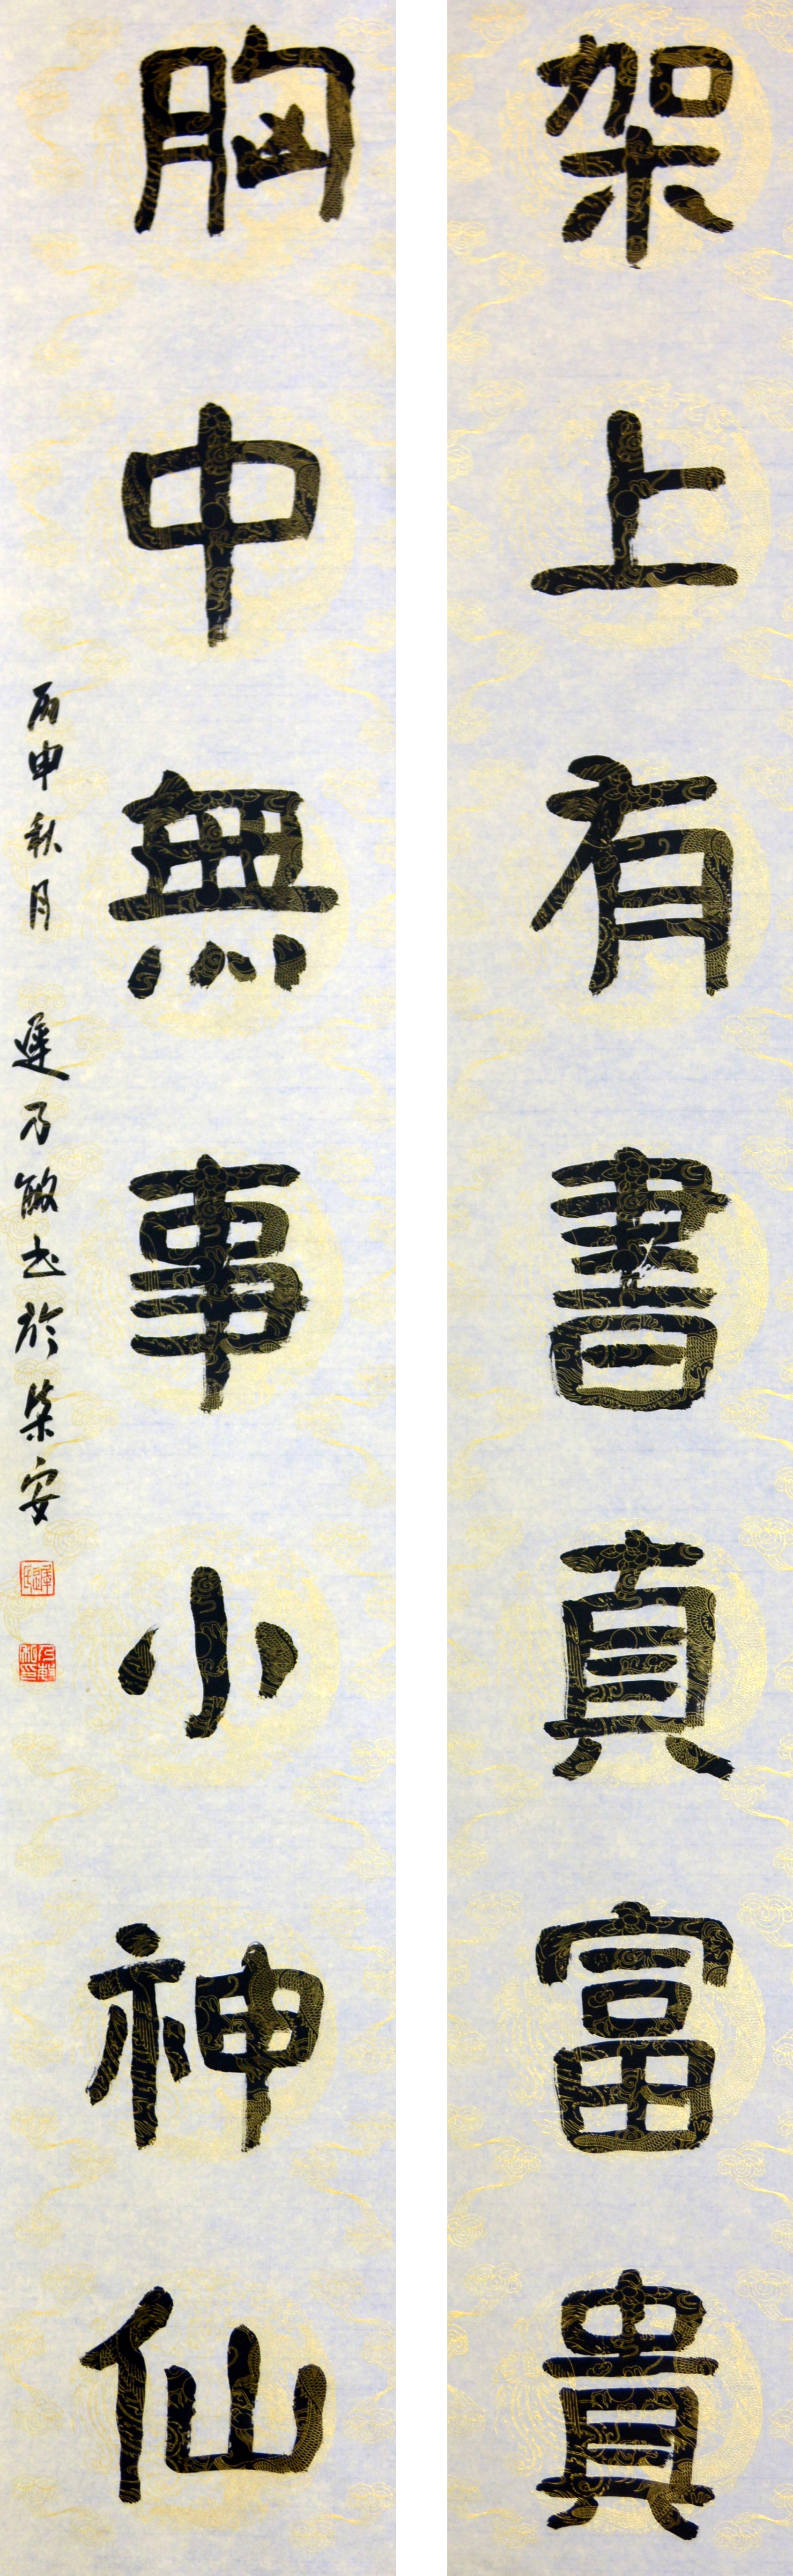 架上有書真富貴
胸中無事小神仙
丙申秋月 遲乃敏书於榮安